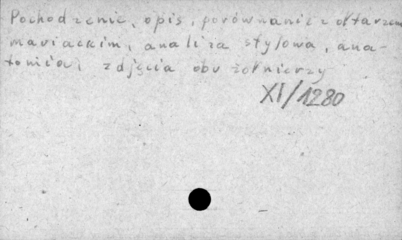 Pochodzenie, opis, porównanie z ołtarzem
mariackim, analiza stylowa, ana-
tomiczna, zdjęcia obu żołnierzy
XI/1280